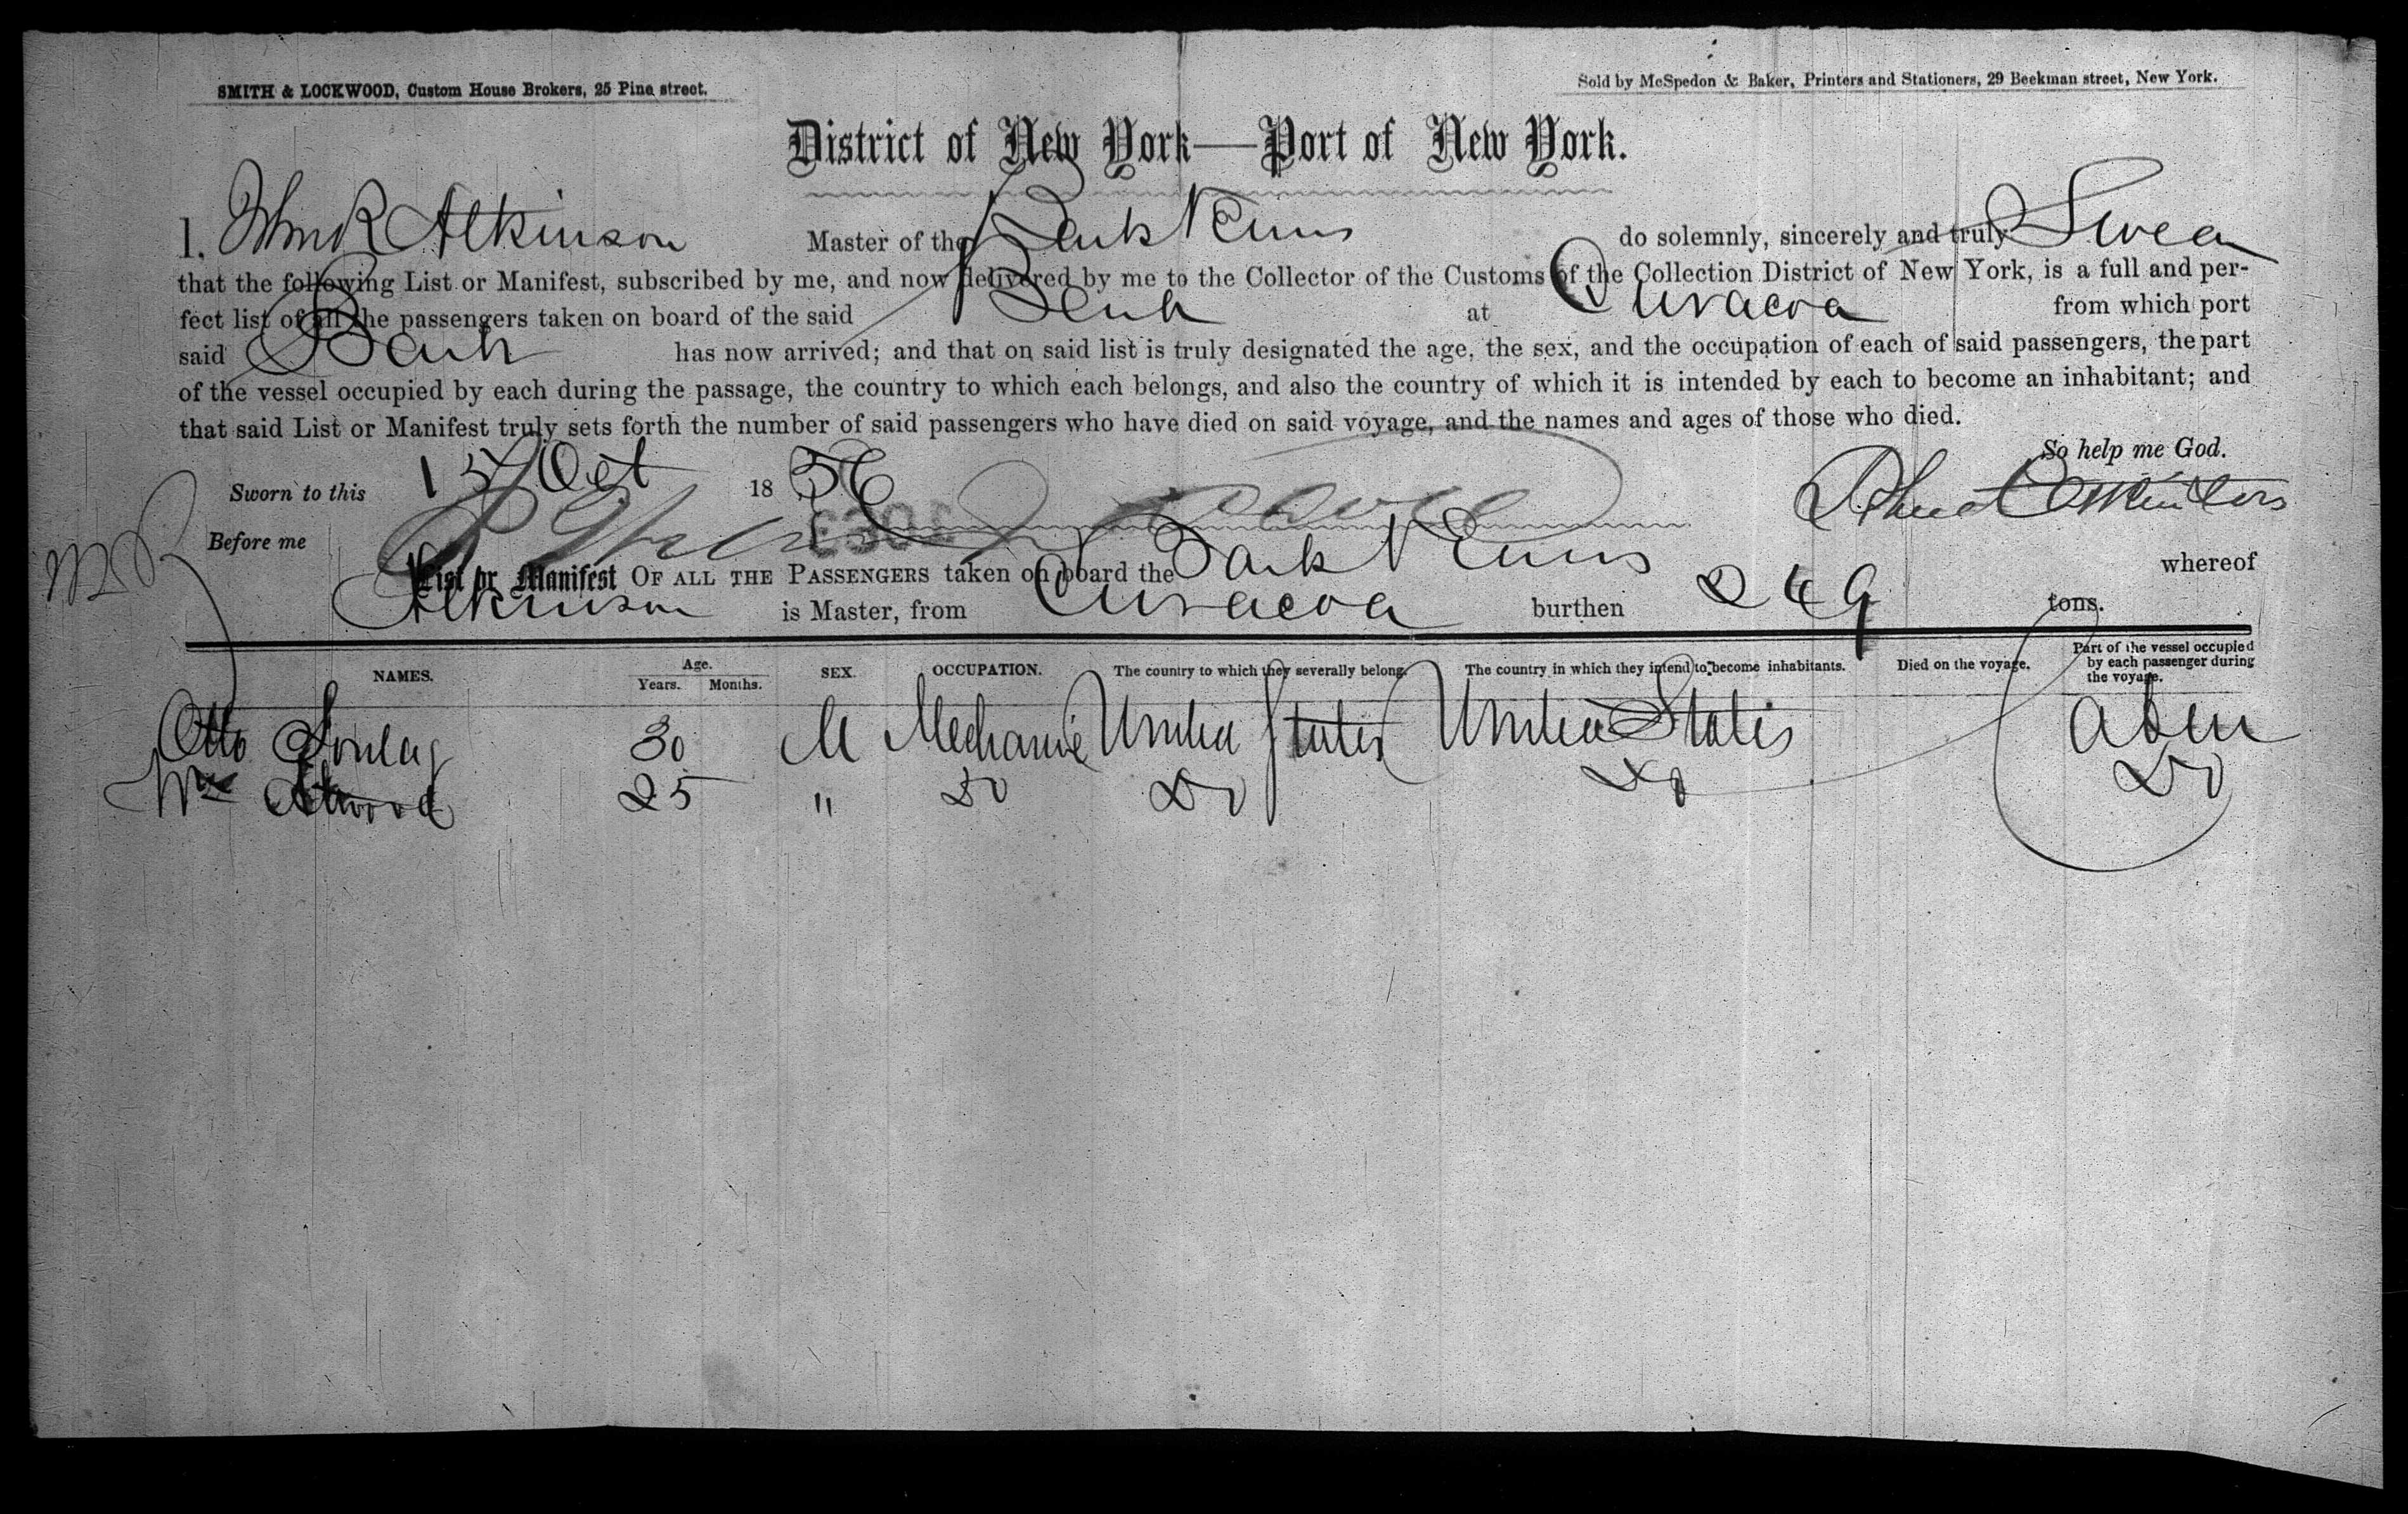 SMITH & LOCKWOOD, Custom House Brokers, 25 Pine street.
Sold by McSpedon & Baker, Printers and Stationers, 29 Beekman street, New York.
District of New York—Port of New York.
I, Atkinson Master of the Bark do solemnly, sincerely and truly Swear
that the following List or Manifest, subscribed by me, and now delivered by me to the Collector of the Customs of the Collection District of New York, is a full and per-
fect list of all the passengers taken on board of the said Bark at Curacoa from which port
said Bark has now arrived; and that on said list is truly designated the age, the sex, and the occupation of each of said passengers, the part
of the vessel occupied by each during the passage, the country to which each belongs, and also the country of which it is intended by each to become an inhabitant; and
that said List or Manifest truly sets forth the number of said passengers who have died on said voyage, and the names and ages of those who died.
So help me God.
Sworn to this 15 Oct 1856
Before me
List or Manifest OF ALL THE PASSENGERS taken on board the Bark whereof
Atkinson is Master, from Curacoa burthen 249 tons.
NAMES. Age. Years. Months. SEX. OCCUPATION. The country to which they severally belong. The country in which they intend to become inhabitants. Died on the voyage. Part of the vessel occupied by each passenger during the voyage.
Otto 30 M Mechanic United States United States
Wm Atwood 25 " Do Do Do Do